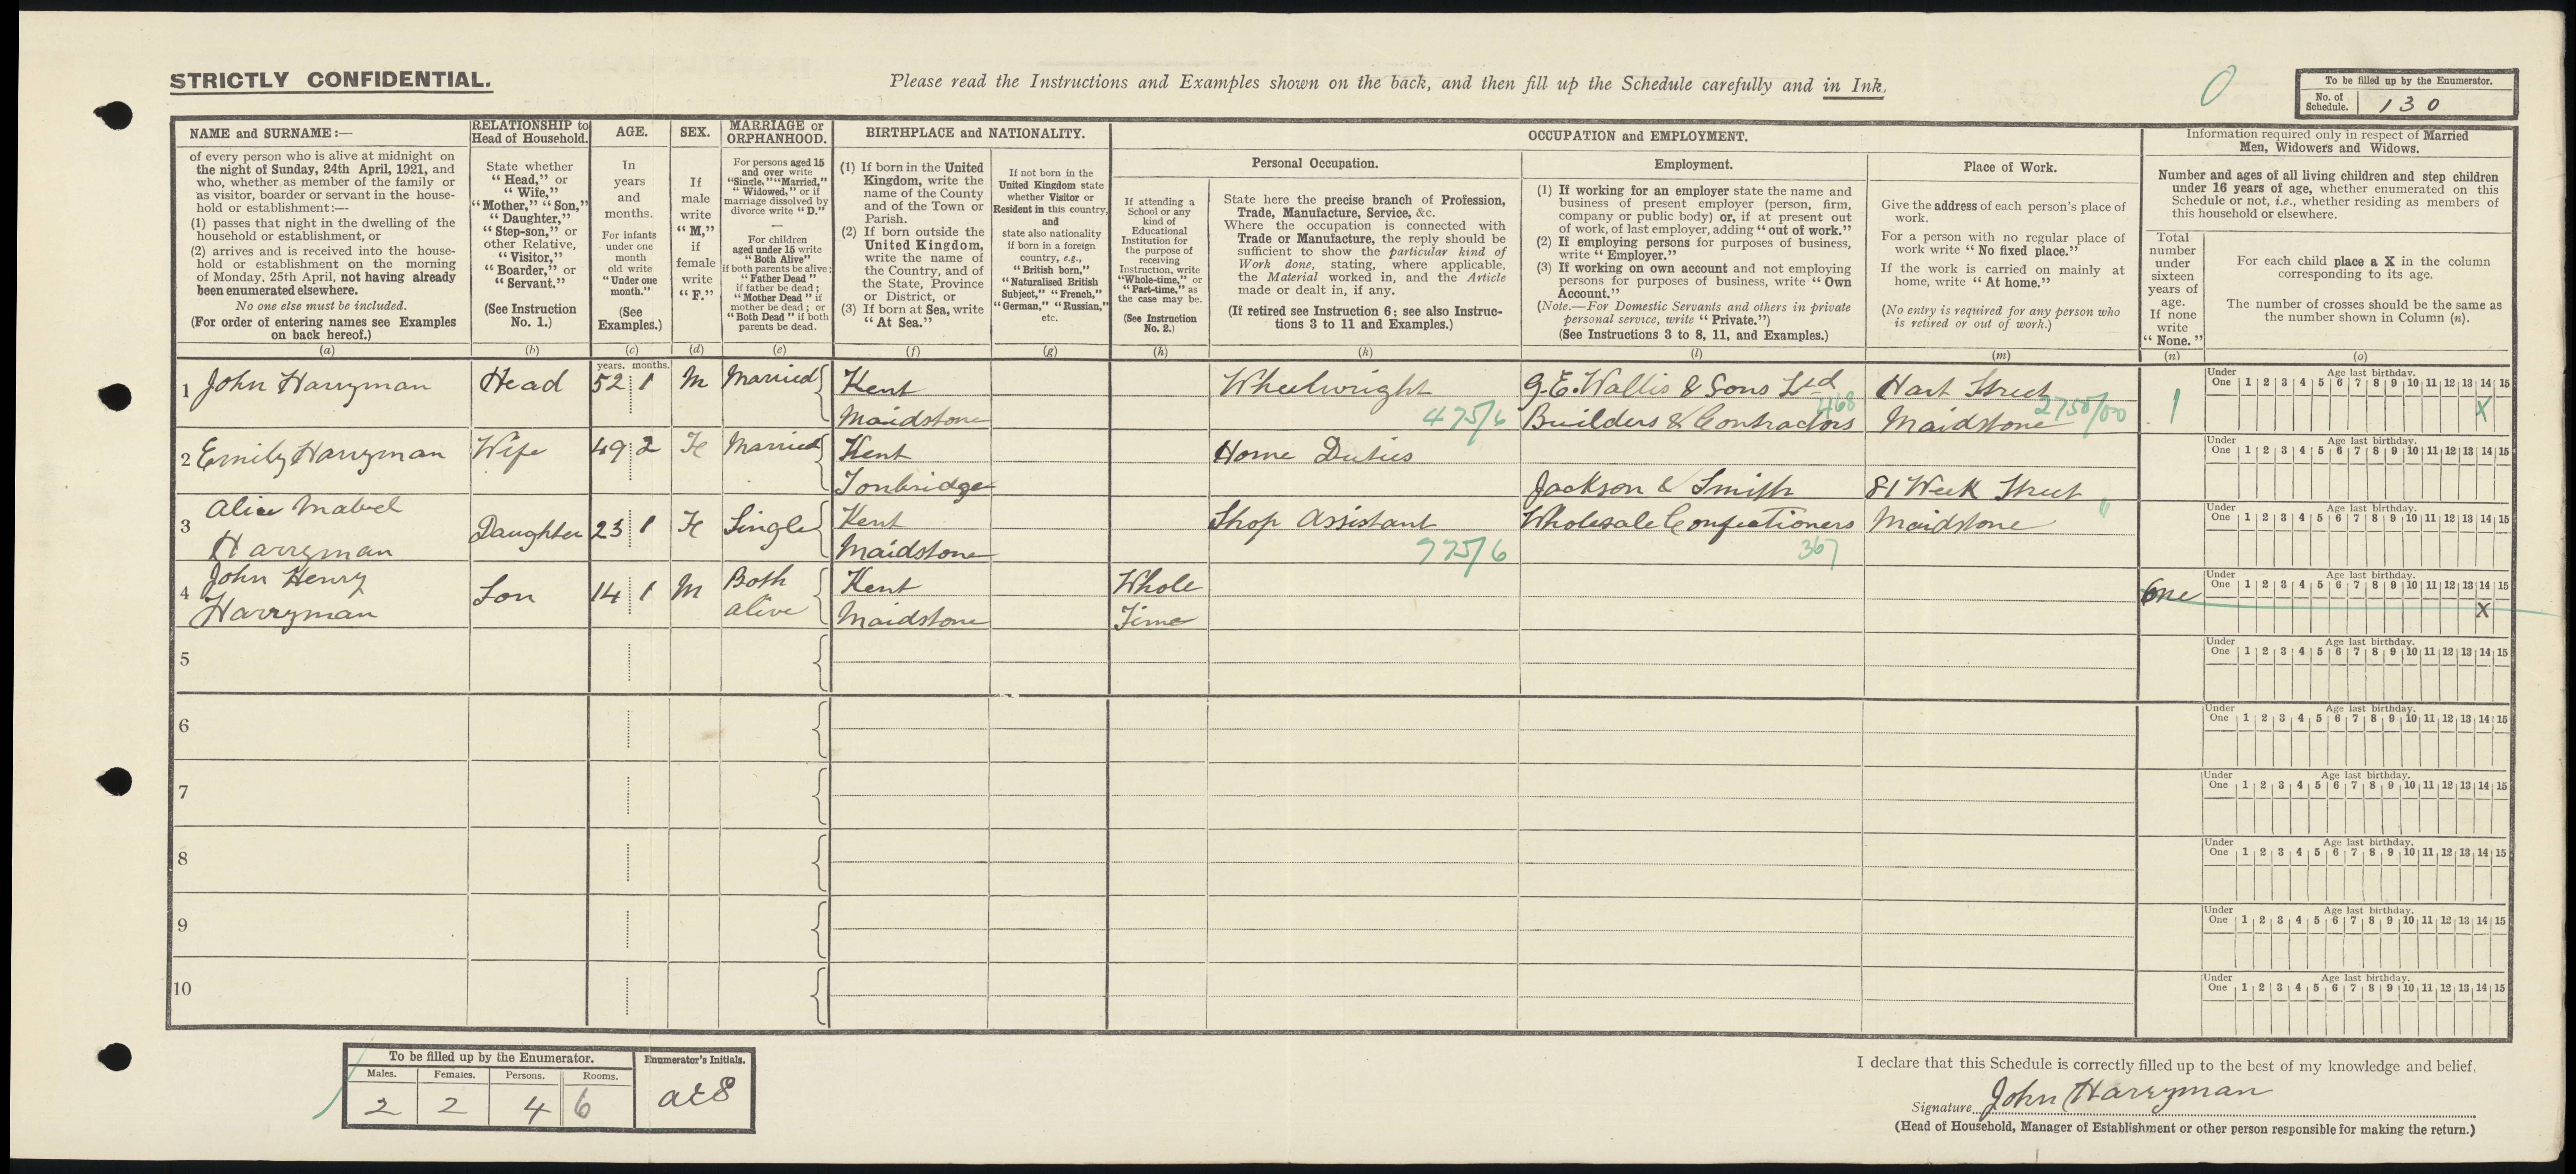 STRICTLY CONFIDENTIAL.
Please read the Instructions and Examples shown on the back, and then fill up the Schedule carefully and in Ink.
0
To be filled up by the Enumerator.
No. of Schedule. 130
NAME and SURNAME :—
of every person who is alive at midnight on
the night of Sunday, 24th April, 1921, and
who, whether as member of the family or
as visitor, boarder or servant in the house-
hold or establishment :—
(1) passes that night in the dwelling of the
household or establishment, or
(2) arrives and is received into the house-
hold or establishment on the morning
of Monday, 25th April, not having already
been enumerated elsewhere.
No one else must be included.
(For order of entering names see Examples
on back hereof.)
(a)
RELATIONSHIP to
Head of Household.
State whether
"Head," or
"Wife,"
"Mother," "Son,"
"Daughter,"
"Step-son," or
other Relative,
"Visitor,"
"Boarder," or
"Servant."
(See Instruction
No. 1.)
(b)
AGE.
In
years
and
months.
For infants
under one
month
old write
"Under one
month."
(See
Examples.)
(c)
SEX.
If
male
write
"M,"
if
female
write
"F."
(d)
MARRIAGE or
ORPHANHOOD.
For persons aged 15
and over write
"Single," "Married,"
"Widowed," or if
marriage dissolved by
divorce write "D."
—
For children
aged under 15 write
"Both Alive"
if both parents be alive;
"Father Dead"
if father be dead;
"Mother Dead" if
mother be dead; or
"Both Dead" if both
parents be dead.
(e)
BIRTHPLACE and NATIONALITY.
(1) If born in the United
Kingdom, write the
name of the County
and of the Town or
Parish.
(2) If born outside the
United Kingdom,
write the name of
the Country, and of
the State, Province
or District, or
(3) If born at Sea, write
"At Sea."
(f)
If not born in the
United Kingdom state
whether Visitor or
Resident in this country,
and
state also nationality
if born in a foreign
country, e.g.,
"British born,"
"Naturalised British
Subject," "French,"
"German," "Russian,"
etc.
(g)
OCCUPATION and EMPLOYMENT.
If attending a
School or any
kind of
Educational
Institution for
the purpose of
receiving
Instruction, write
"Whole-time," or
"Part-time," as
the case may be.
(See Instruction
No. 2.)
(h)
Personal Occupation.
State here the precise branch of Profession,
Trade, Manufacture, Service, &c.
Where the occupation is connected with
Trade or Manufacture, the reply should be
sufficient to show the particular kind of
Work done, stating, where applicable,
the Material worked in, and the Article
made or dealt in, if any.
(If retired see Instruction 6; see also Instruc-
tions 3 to 11 and Examples.)
(k)
Employment.
(1) If working for an employer state the name and
business of present employer (person, firm,
company or public body) or, if at present out
of work, of last employer, adding "out of work."
(2) If employing persons for purposes of business,
write "Employer."
(3) If working on own account and not employing
persons for purposes of business, write "Own
Account."
(Note.—For Domestic Servants and others in private
personal service, write "Private.")
(See Instructions 3 to 8, 11, and Examples.)
(l)
Place of Work.
Give the address of each person's place of
work.
For a person with no regular place of
work write "No fixed place."
If the work is carried on mainly at
home, write "At home."
(No entry is required for any person who
is retired or out of work.)
(m)
Information required only in respect of Married
Men, Widowers and Widows.
Number and ages of all living children and step children
under 16 years of age, whether enumerated on this
Schedule or not, i.e., whether residing as members of
this household or elsewhere.
Total
number
under
sixteen
years of
age.
If none
write
"None."
(n)
For each child place a X in the column
corresponding to its age.
The number of crosses should be the same as
the number shown in Column (n).
(o)
years. months.
1 John Harryman Head 52 1 M Married Kent Maidstone Wheelwright 475/6 G.E. Wallis & Sons Ltd Builders & Contractors 468 Hart Street Maidstone 2750/00 1
Age last birthday.
Under One 1 2 3 4 5 6 7 8 9 10 11 12 13 14 15
X
2 Emily Harryman Wife 49 2 F Married Kent Tonbridge Home Duties
Age last birthday.
Under One 1 2 3 4 5 6 7 8 9 10 11 12 13 14 15
3 Alice Mabel Harryman Daughter 23 1 F Single Kent Maidstone Shop Assistant 775/6 Jackson & Smith Wholesale Confectioners 367 81 Week Street Maidstone "
Age last birthday.
Under One 1 2 3 4 5 6 7 8 9 10 11 12 13 14 15
4 John Henry Harryman Son 14 1 M Both alive Kent Maidstone Whole Time One
Age last birthday.
Under One 1 2 3 4 5 6 7 8 9 10 11 12 13 14 15
X
5
Age last birthday.
Under One 1 2 3 4 5 6 7 8 9 10 11 12 13 14 15
6
Age last birthday.
Under One 1 2 3 4 5 6 7 8 9 10 11 12 13 14 15
7
Age last birthday.
Under One 1 2 3 4 5 6 7 8 9 10 11 12 13 14 15
8
Age last birthday.
Under One 1 2 3 4 5 6 7 8 9 10 11 12 13 14 15
9
Age last birthday.
Under One 1 2 3 4 5 6 7 8 9 10 11 12 13 14 15
10
Age last birthday.
Under One 1 2 3 4 5 6 7 8 9 10 11 12 13 14 15
To be filled up by the Enumerator.
Males. Females. Persons. Rooms.
2 2 4 6
Enumerator's Initials.
I declare that this Schedule is correctly filled up to the best of my knowledge and belief.
Signature John Harryman
(Head of Household, Manager of Establishment or other person responsible for making the return.)